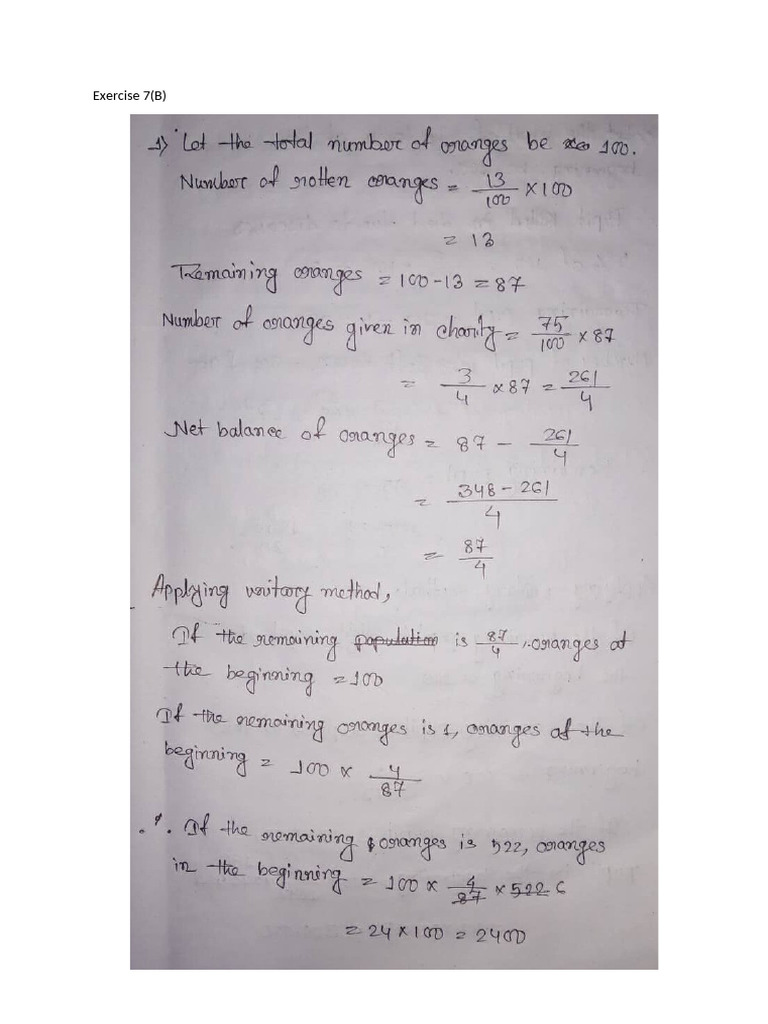 Exercise 7(B)
1) Let the total number of oranges be 100.
Number of rotten oranges = 13/100 × 100
= 13
Remaining oranges = 100 - 13 = 87
Number of oranges given in charity = 75/100 × 87
= 3/4 × 87 = 261/4
Net balance of oranges = 87 - 261/4
= 348 - 261/4
= 87/4
Applying unitary method,
If the remaining population is 87/4, oranges at
the beginning = 100
If the remaining oranges is 1, oranges at the
beginning = 100 × 4/87
∴ If the remaining oranges is 522, oranges
in the beginning = 100 × 4/87 × 522 6
= 24 × 100 = 2400